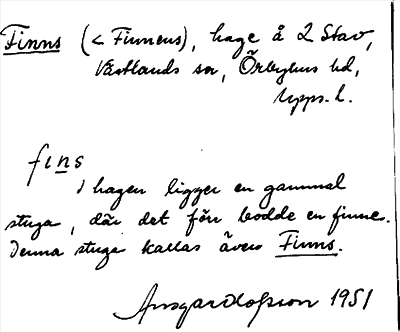 Finns (< Finnens), hage å 2 Stav,
Västlands sn, Örbyhus hd,
Upps. l.
fins
I hagen ligger en gammal
stuga, där det förr bodde en finne.
Denna stuga kallas även Finns.
1951